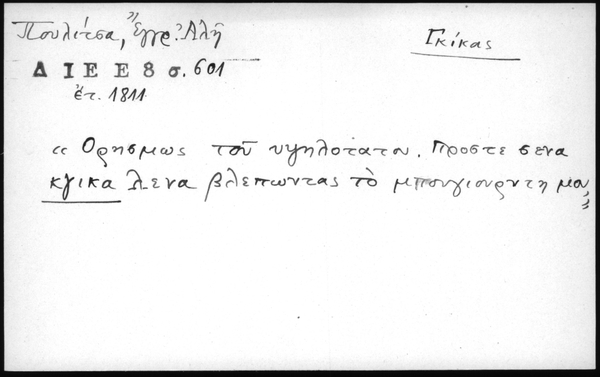 Πουλίτσα, "Ἔγγρ. Ἀλῆ
Γκίκας
Δ Ι Ε Ε 8 σ. 601
ἔτ. 1811
« Ορησμως τοῦ υψηλοτατου. Προστε σενα
κγικα λενα βλεπωντας τὸ μπουγιουρντη μου»